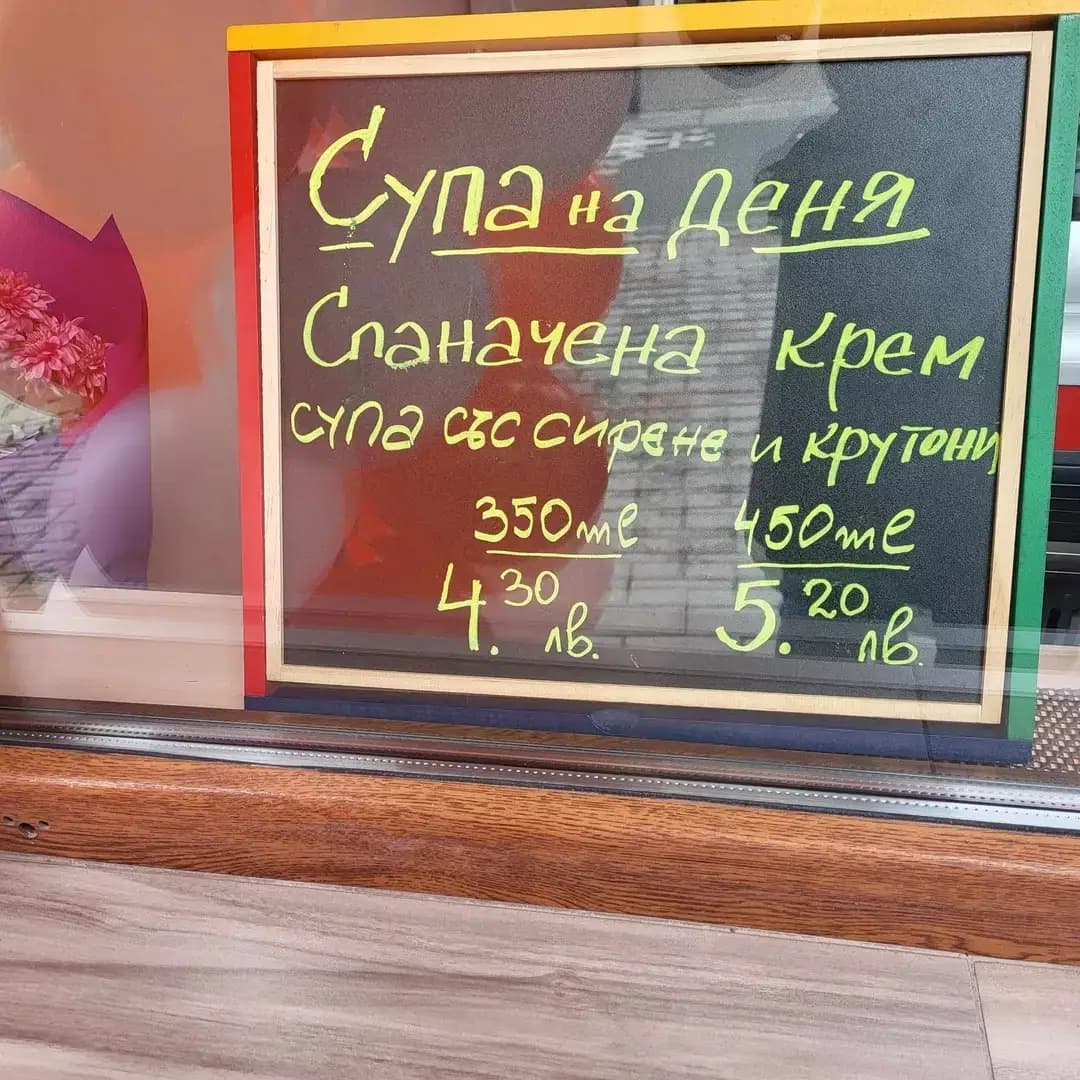 Супа на деня
Спаначена крем
супа със сирене и крутони
350мл 450мл
4.30 лв. 5.20 лв.